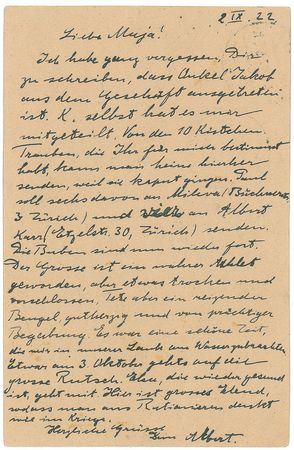 2 IX. 22
Liebe Maja!
Ich habe ganz vergessen, Dir
zu schreiben, dass Onkel Jakob
aus dem Geschäft ausgetreten
ist. K. selbst hat es mir
mitgeteilt. Von den 10 Kistchen
Trauben, die Ihr für mich bestimmt
habt, kann man keine hierher
senden, weil sie kaput gingen. Paul
soll sechs davon an Mileva
3 Zürich) und vier an Albert
Karr 30, Zürich) senden.
Die Buben sind nun wieder fort.
Der Grosse ist ein wahrer Athlet
geworden, aber etwas trocken und
verschlossen. Tete aber ein reizender
Bengel, gutherzig und von prächtiger
Begabung. Es war eine schöne Zeit,
die wir in unserer Laube am Wasser
Etwa am 3. Oktober gehts auf die
grosse Rutsch. Else, die wieder gesund
ist, geht mit. Hier ist grosses Elend,
sodass man an Rationieren denkt
wie im Kriege.
Herzliche Grüsse
Euer Albert.